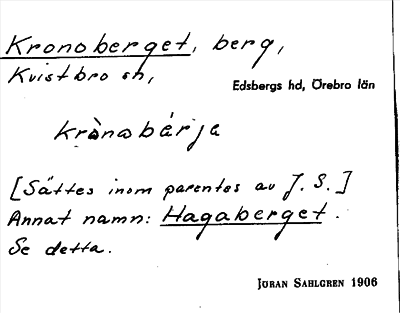 Kronoberget, berg,
Kvistbro sn,
Edsbergs hd, Örebro län
krònabǽrja
[Sättes inom parentes av J. S.]
Annat namn: Hagaberget.
Se detta.
Jöran Sahlgren 1906